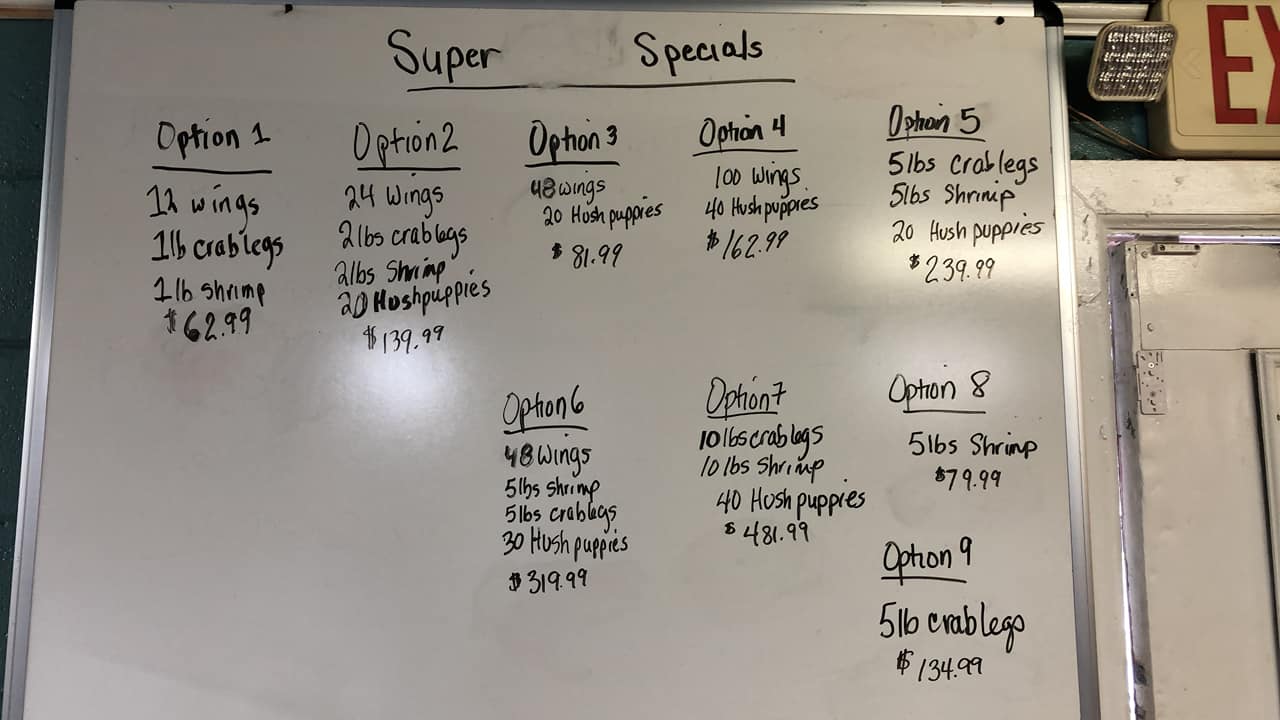 Super Specials
Option 1
12 wings
1lb crab legs
1lb shrimp
$62.99
Option 2
24 Wings
2lbs crab legs
2lbs Shrimp
20 Hushpuppies
$139.99
Option 3
48 wings
20 Hush puppies
$81.99
Option 4
100 Wings
40 Hush puppies
$162.99
Option 5
5lbs Crab legs
5lbs Shrimp
20 Hush puppies
$239.99
Option 6
48 Wings
5lbs shrimp
5lbs crab legs
30 Hush puppies
$319.99
Option 7
10lbs crab legs
10 lbs shrimp
40 Hush puppies
$481.99
Option 8
5lbs Shrimp
$79.99
Option 9
5lb crab legs
$134.99
EX